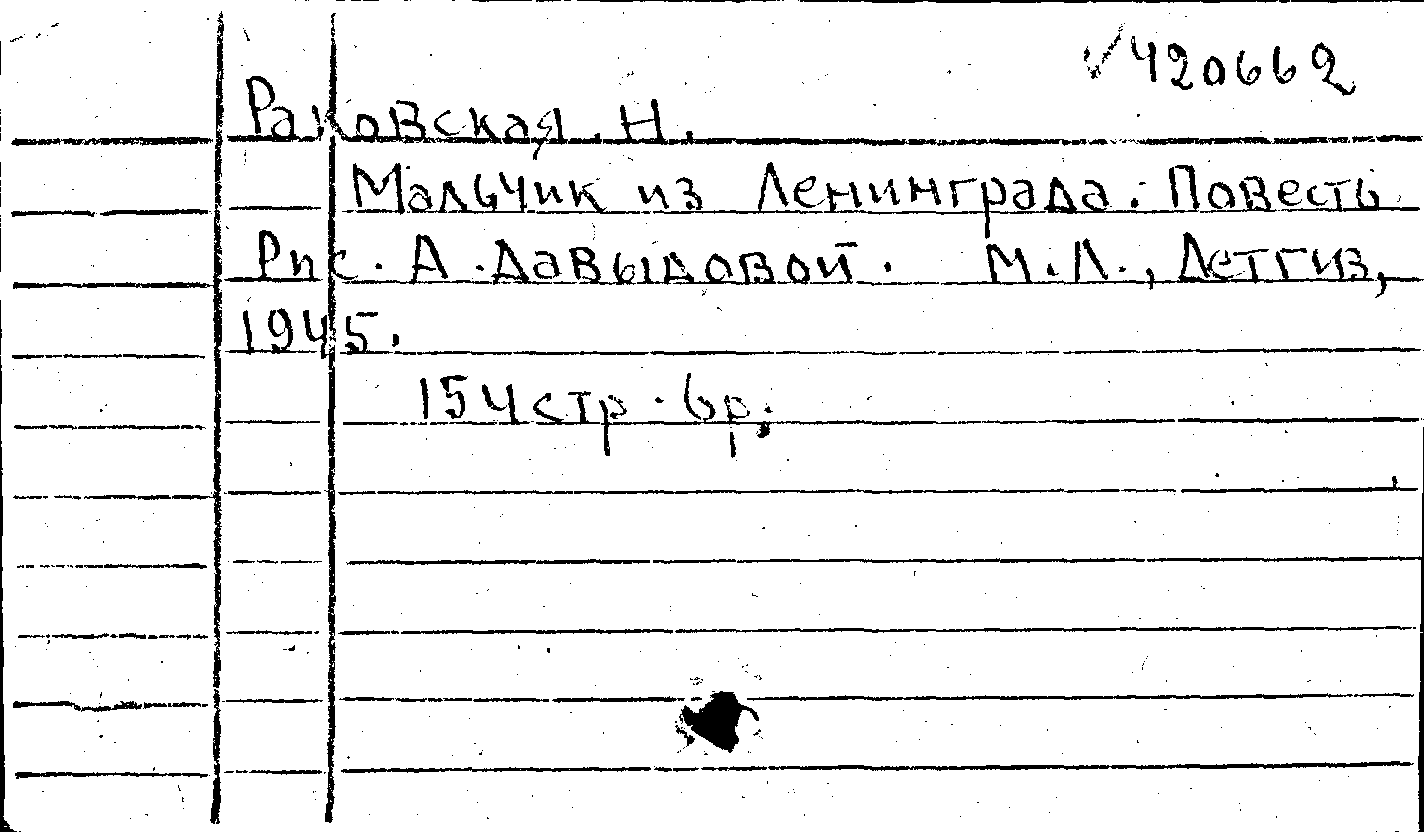 √420662
Раковская. Н.
Мальчик из Ленинграда. Повесть
Рис. А. Давыдовой. М.Л., Детгиз,
1945.
154 стр. 6р.